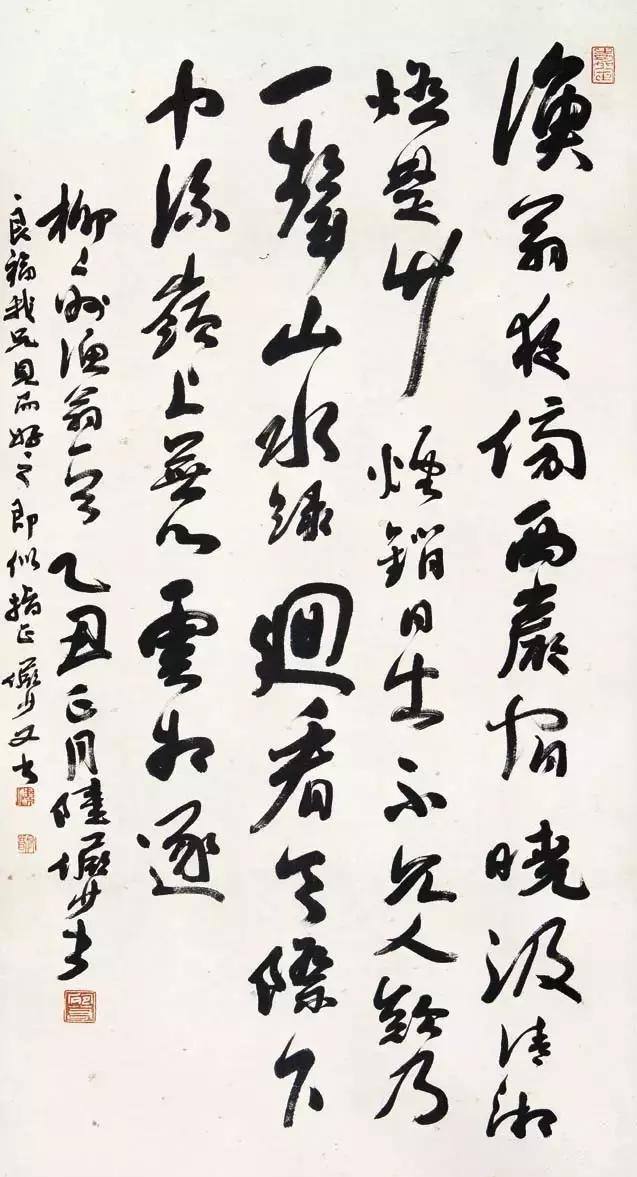 漁翁夜傍西巖宿曉汲清湘
燃楚竹煙銷日出不見人欸乃
一聲山水綠迴看天際下
中流巖上無心雲相逐
柳々州漁翁乙丑正月陸儼少書
良福我兄見而好之即似指正儼少又書